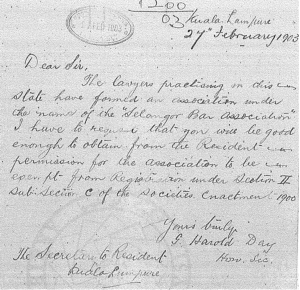 1300
03
Kuala Lumpure
27th February 1903
Dear Sir,
The lawyers practising in this
state have formed an association under
the name of the "Selangor Bar Association"
I have to request that you will be good
enough to obtain from the Resident
permission for the association to be
exempt from Registration under Section II
Sub: Section C of the Societies Enactment 1900
Yours truly
G. Harold Day
Hon. Sec.
The Secretary to Resident
Kuala Lumpure